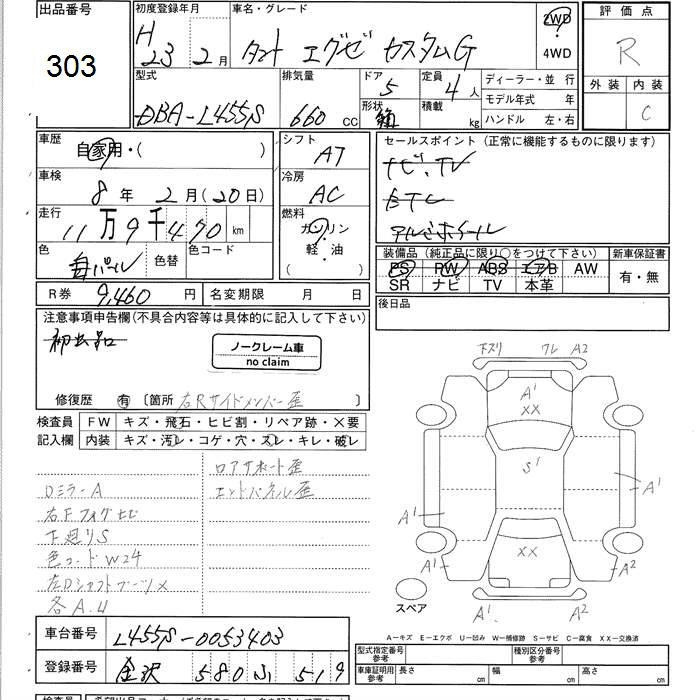 出品番号
303
初度登録年月
H 23 2月
車名・グレード
タント エグゼ カスタムG
2WD
4WD
評価点
R
外装 内装
C
型式
DBA-L455S
排気量
660 cc
ドア
5
形状
箱
定員
4人
積載
kg
ディーラー・並 行
モデル年式 年
ハンドル 左・右
車歴
自家用・( )
シフト
AT
セールスポイント (正常に機能するものに限ります)
ナビ、TV
ETC
アルミホイール
車検
8年 2月(20日)
冷房
AC
走行
11万9千470 km
燃料
ガソリン
軽・油
( )
色
白パール
色替
色コード
装備品 (純正品に限り○をつけて下さい)
PS PW ABS エアB AW
SR ナビ TV 本革
新車保証書
有・無
R券 9,460円
名変期限 月 日
後日品
注意事項申告欄(不具合内容等は具体的に記入して下さい)
初出品
ノークレーム車
no claim
修復歴 有 〔箇所 右Rサイドメンバー歪
検査員
記入欄
FW キズ・飛石・ヒビ割・リペア跡・×要
内装 キズ・汚レ・コゲ・穴・スレ・キレ・破レ
ロアサポート歪
Dミラー A
エンドパネル歪
右Fフォグヒビ
下廻りS
色コード W24
左Dシャフトブーツ×
各A.U
下スリ ワレ A2
A1
XX
S1
A1
A1
XX
A1
A2
A1
A2
スペア
A-キズ E-エクボ U-凹み W-補修跡 S-サビ C-腐食 XX-交換済
車台番号 L455S-0053403
登録番号 金沢 580 ふ 519
型式指定番号
参考
種別区分番号
参考
車庫証明用
参考
長さ cm 幅 cm 高さ cm